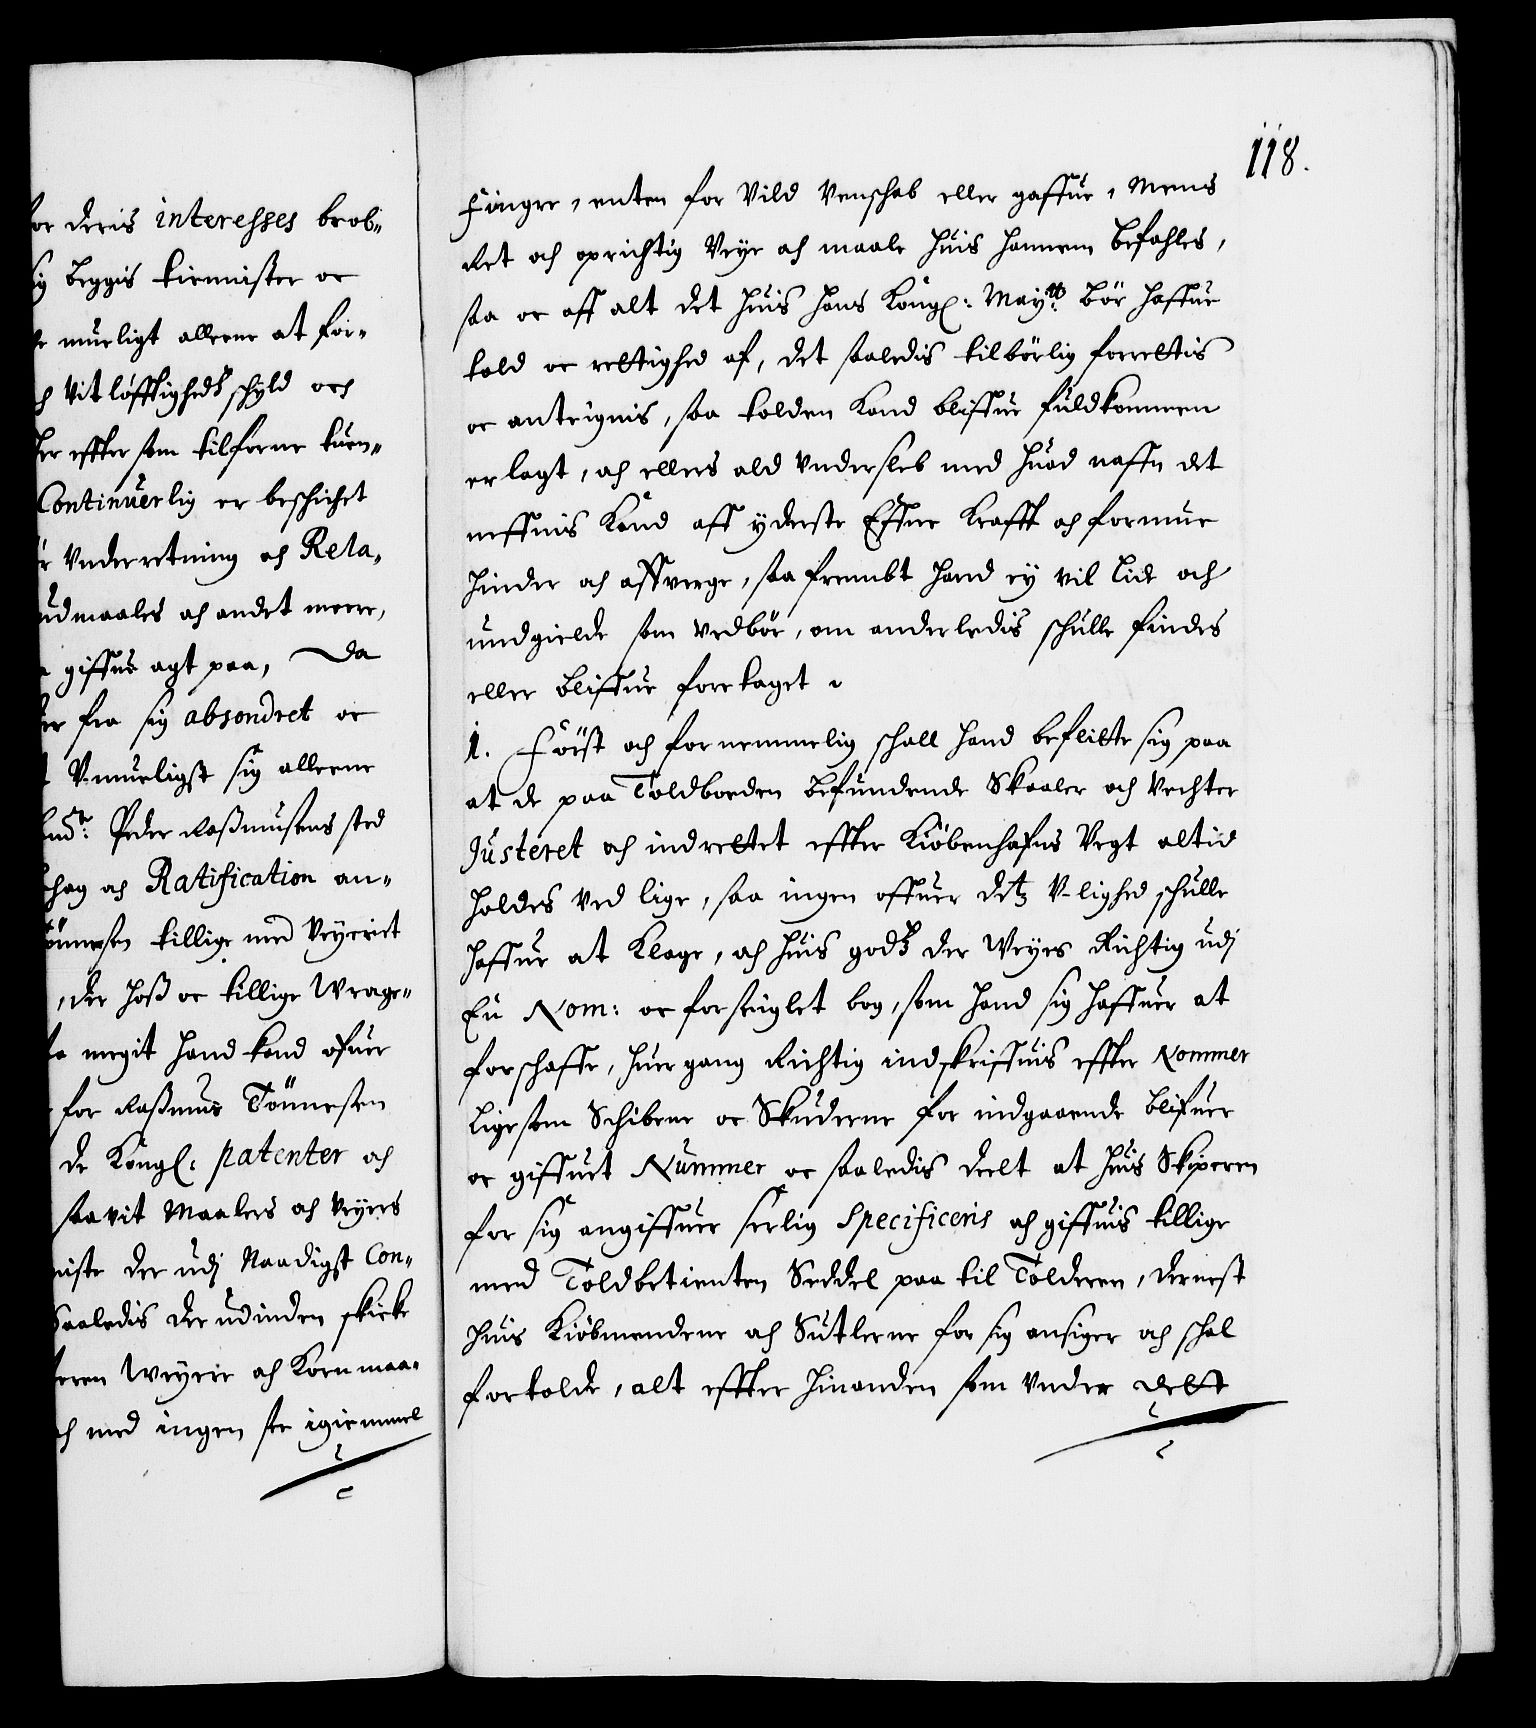 for deris interesses brob-
sig beggis tienister oc
murligt alleene at for-
vitløfftigheds schyld och
effter som tilforne kien-
Continuerlig er beschichet
Underretning och Rela-
udmaales och andet meere,
giffue agt paa, Da
fra sig absondret oc
V-mueligst sig alleene
Peder Rasmusens sted
och Ratification an-
Tönnesen tillige med Veyeriet
der hoss oc tillige Wrage-
megit hand kand ofuer
for Rasmus Tönnesen
de Kongl: patenter och
saavit Maalers och Veyers
der udj Naadigst Con-
Saaledis der udinden skicke
Weyerie och Kornmaa-
och med ingen ste igiemmel
118.
Finger, enten for Vild Venschab eller gaffue, Mens
Ret och oprichtig Veye och maale huis hannem befahles,
saa oc aff alt det huis hans Kongl: Maytt: bör haffue
told oc rettighed af, det saaledis tilbörlig forrettis
oc antegnis, saa tolden Kand bliffue fuldkommen
erlagt, och ellers ald Undersleb med huad naffn det
neffnis Kand aff yderste Effne Krafft och formue
hinder och affverge, saa frembt hand ey vil lide och
undgielde som vedbör, om anderledis schulle findes
eller bliffue foretaget.
1. Först och fornemmelig schall hand beflitte sig paa
at de paa Toldboeden befundende Skaaler och Vechter
Justeret och indrettet effter Kiöbenhafns Vegt altid
holdes ved lige, saa ingen offuer detz V-lighed schulle
haffue at Klage, och huis godtz der Weyes Richtig udj
En Nom: oc forseiglet bog, som hand sig haffuer at
forschaffe, huer gang Richtig indskriffuis effter Nommer
ligesom Schibene oc Skuderne for indgaaende blifuer
oc giffuet Nummer oc saaledis deelt at huis Skiperen
for sig angiffuer serlig Specificeris och giffuis tillige
med Toldbetienten Seddel paa til Tolderen, dernest
huis Kiöbmendene och Sutlerne for sig ansiger och schal
fortolde, alt effter hinanden som Under Delt